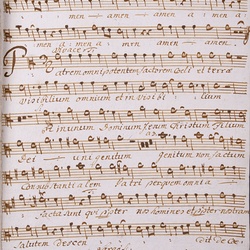 men amen amen a men
men a men a men amen
Patrem omnipotentem factorem Celi et terræ
Visibilium omnium et invisibilium
Et in unum Dominum Jesum Christum Filium
Dei unigenitum Genitum non factum
Consubstantialem Patri per quem omnia
facta sunt qui propter nos homines et propter nostram
Salutem Descen dit de Coe